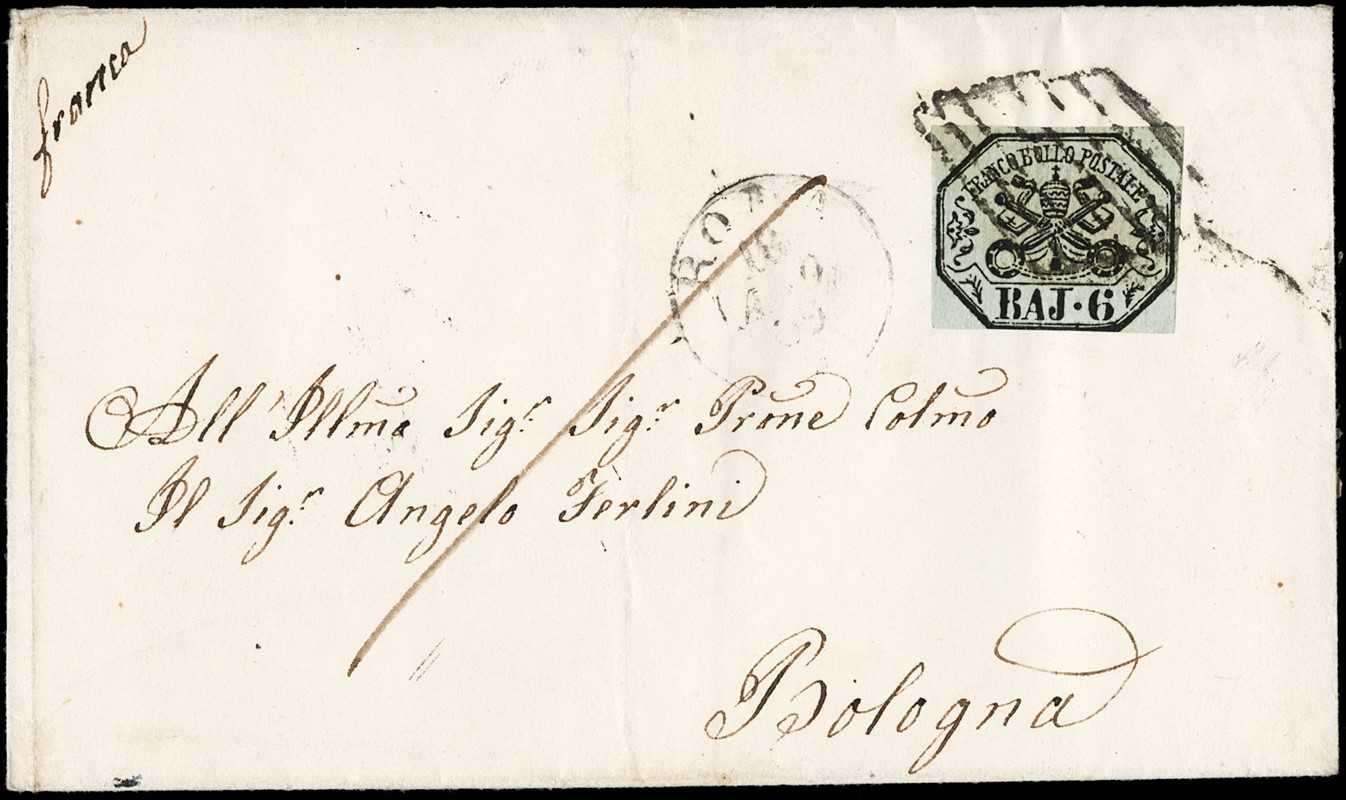 franca
FRANCO BOLLO POSTALE
BAJ·6
ROMA
18
All' Illmo Sigr Sigr Prone Colmo
Il Sigr Angelo Ferlini
Bologna